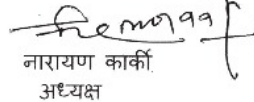 नारायण कार्की
अध्यक्ष